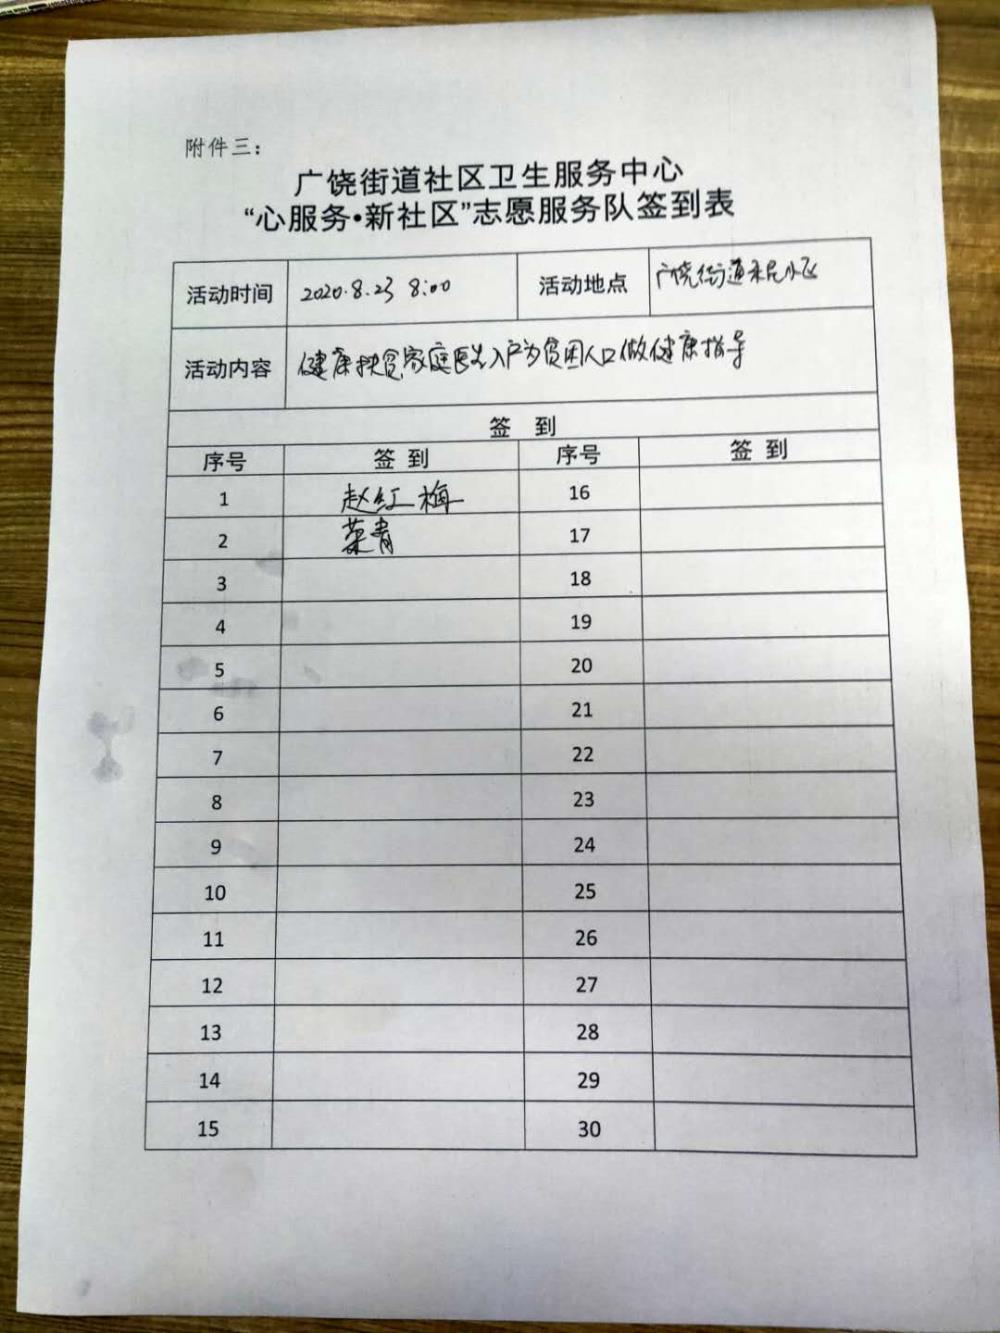 附件三：
广饶街道社区卫生服务中心
“心服务•新社区”志愿服务队签到表
活动时间 2020.8.23 8:00 活动地点 广饶街道
活动内容 健康扶贫家庭医生入户为贫困人口做健康指导
签 到
序号 签到 序号 签到
1 赵红梅 16
2 荣青 17
3 18
4 19
5 20
6 21
7 22
8 23
9 24
10 25
11 26
12 27
13 28
14 29
15 30